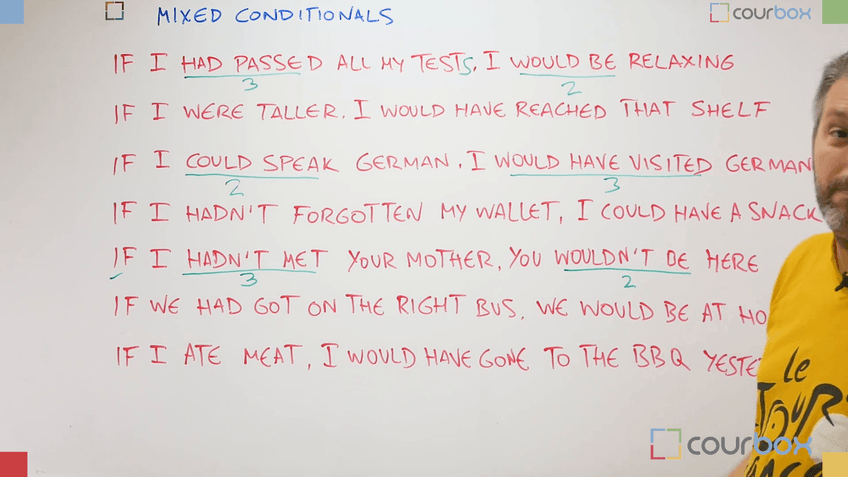 MIXED CONDITIONALS
courbox
IF I HAD PASSED ALL MY TESTS, I WOULD BE RELAXING
3 2
IF I WERE TALLER. I WOULD HAVE REACHED THAT SHELF
IF I COULD SPEAK GERMAN, I WOULD HAVE VISITED GERMAN
2 3
IF I HADN'T FORGOTTEN MY WALLET, I COULD HAVE A SNACK
IF I HADN'T MET YOUR MOTHER, YOU WOULDN'T BE HERE
3 2
IF WE HAD GOT ON THE RIGHT BUS, WE WOULD BE AT HO
IF I ATE MEAT, I WOULD HAVE GONE TO THE BBQ YESTE
Le
TOUR
courbox